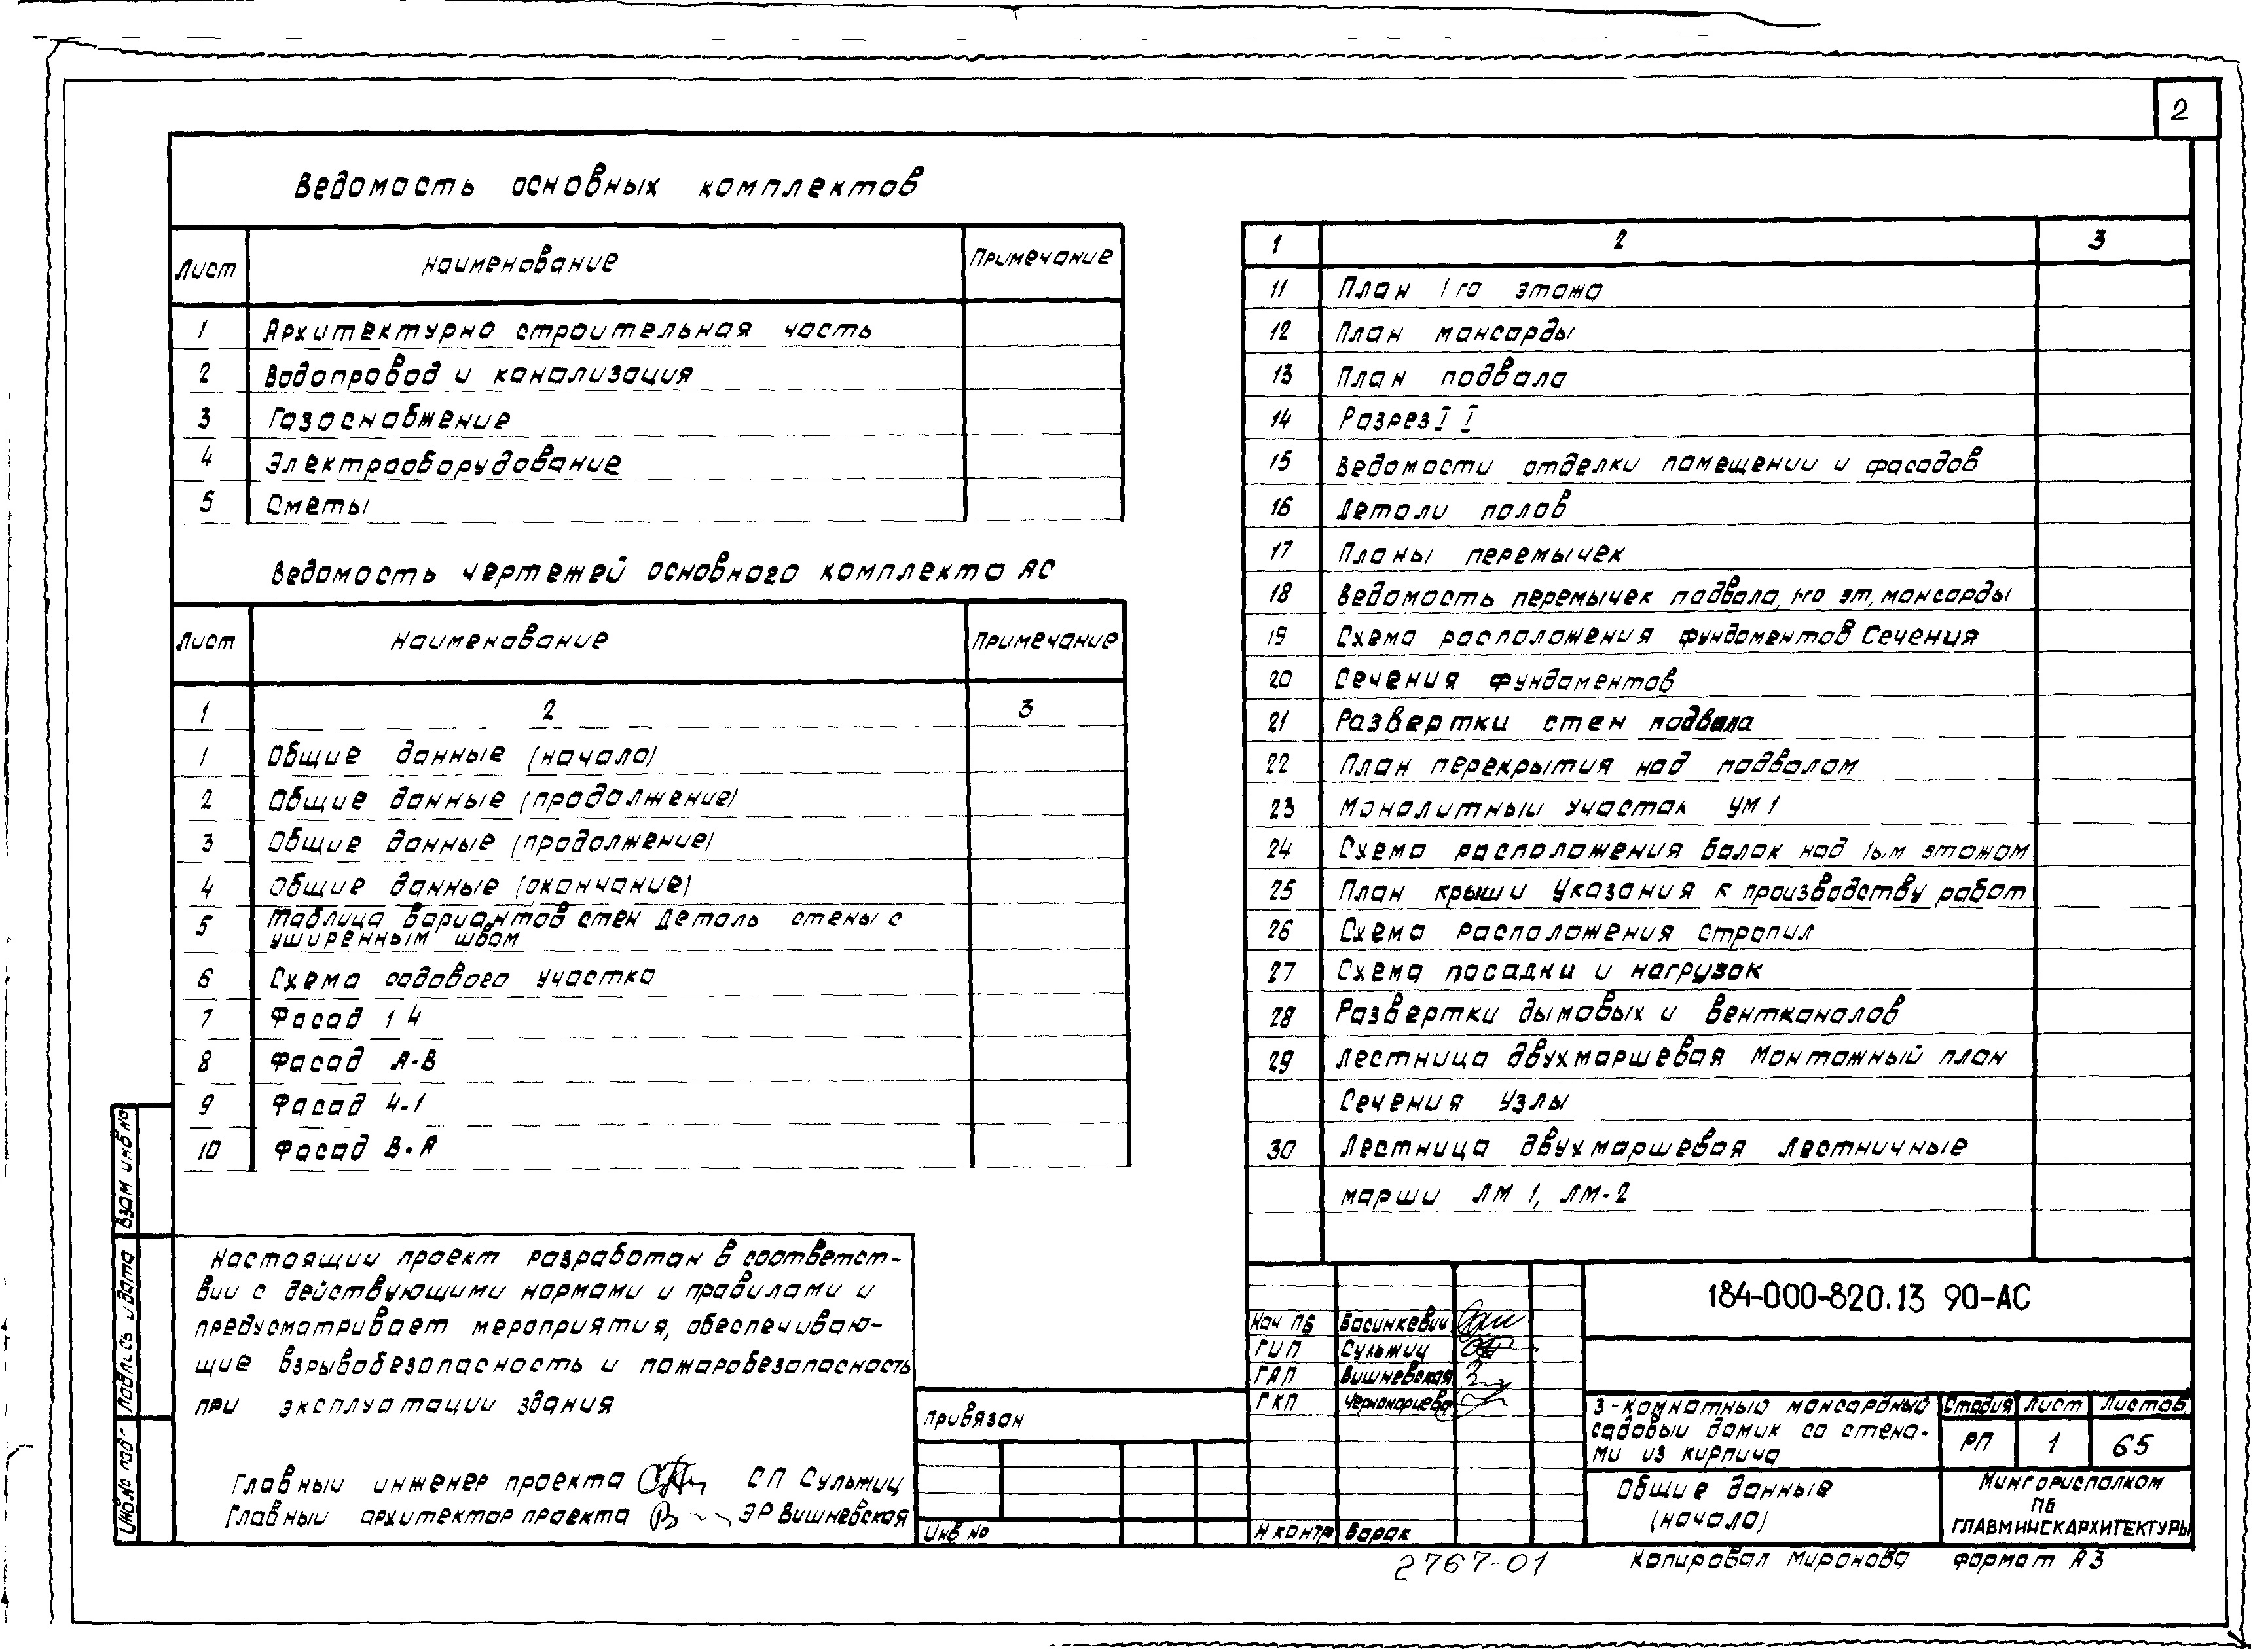 2
Ведомость основных комплектов
Лист Наименование Примечание
1 Архитектурно строительная часть
2 Водопровод и канализация
3 Газоснабжение
4 Электрооборудование
5 Сметы
Ведомость чертежей основного комплекта АС
Лист Наименование Примечание
1 2 3
1 Общие данные (начало)
2 Общие данные (продолжение)
3 Общие данные (продолжение)
4 Общие данные (окончание)
5 Таблица вариантов стен Деталь стены с
уширенным швом
6 Схема садового участка
7 Фасад 1 4
8 Фасад А-В
9 Фасад 4-1
10 Фасад В-А
1 2 3
11 План 1го этажа
12 План мансарды
13 План подвала
14 Разрез I I
15 Ведомости отделки помещении и фасадов
16 Детали полов
17 Планы перемычек
18 Ведомость перемычек подвала, 1-го эт, мансарды
19 Схема расположения фундаментов Сечения
20 Сечения фундаментов
21 Развертки стен подвала
22 План перекрытия над подвалом
23 Монолитный участок УМ 1
24 Схема расположения балок над 1ым этажом
25 План крыши Указания к производству работ
26 Схема расположения стропил
27 Схема посадки и нагрузок
28 Развертки дымовых и вентканалов
29 Лестница двухмаршевая Монтажный план
Сечения Узлы
30 Лестница двухмаршевая Лестничные
марши ЛМ 1, ЛМ-2
Настоящии проект разработан в соответст-
вии с действующими нормами и правилами и
предусматривает мероприятия, обеспечиваю-
щие взрывобезопасность и пожаробезопасность
при эксплуатации здания
Главныи инженер проекта СП Сульжиц
Главныи архитектор проекта ЭР Вишневская
Взам инв но
Подпись и дата
Инв.№ под
Привязан
Инв №
Нач ПБ Васинкевич
ГИП Сульжиц
ГАП Вишневская
ГКП Черноморцева
Н контр Барак
184-000-820.13 90-АС
3-комнатный мансардный
садовыи домик со стена-
ми из кирпича
Стадия Лист Листов
РП 1 65
Общие данные
(начало)
Мингорисполком
ПБ
ГЛАВМИНСКАРХИТЕКТУРЫ
2767-01
Копировал Миронова формат А3